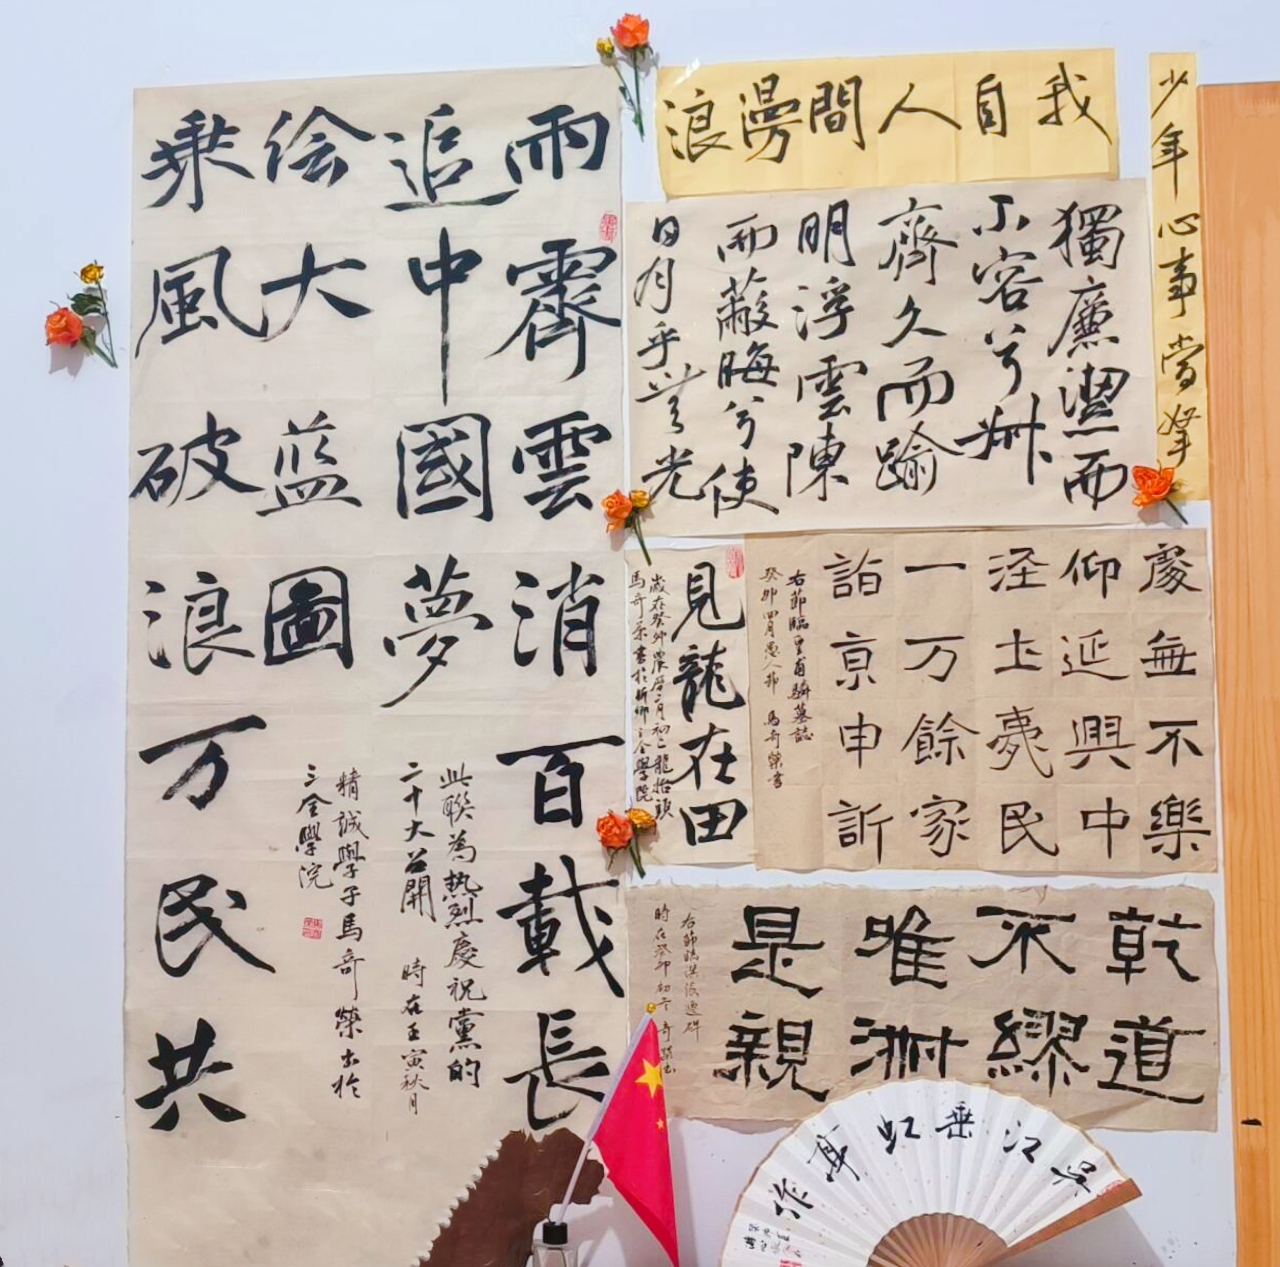 雨霽雲消百載長
追中國夢
绘大蓝圖
乘風破浪万民共
此聯為热烈慶祝黨的
二十大召開 時在壬寅秋月
精誠學子馬奇榮書於
三全學院
我自人間漫浪
少年心事當拏
獨廉潔而
不容兮叔
齊久而踰
明浮雲陳
而蔽晦兮使
日月乎無光
見龍在田
歲在癸卯農曆二月初二龍抬頭
馬奇榮書於新鄉三全學院
慶無不樂
仰延興中
泾土夷民
一万餘家
詣京申訴
右節臨皇甫驎墓誌
癸卯四月愚人節 馬奇榮書
乾道
不繆
唯淋
是親
時在癸卯初
吴江垂虹亭作